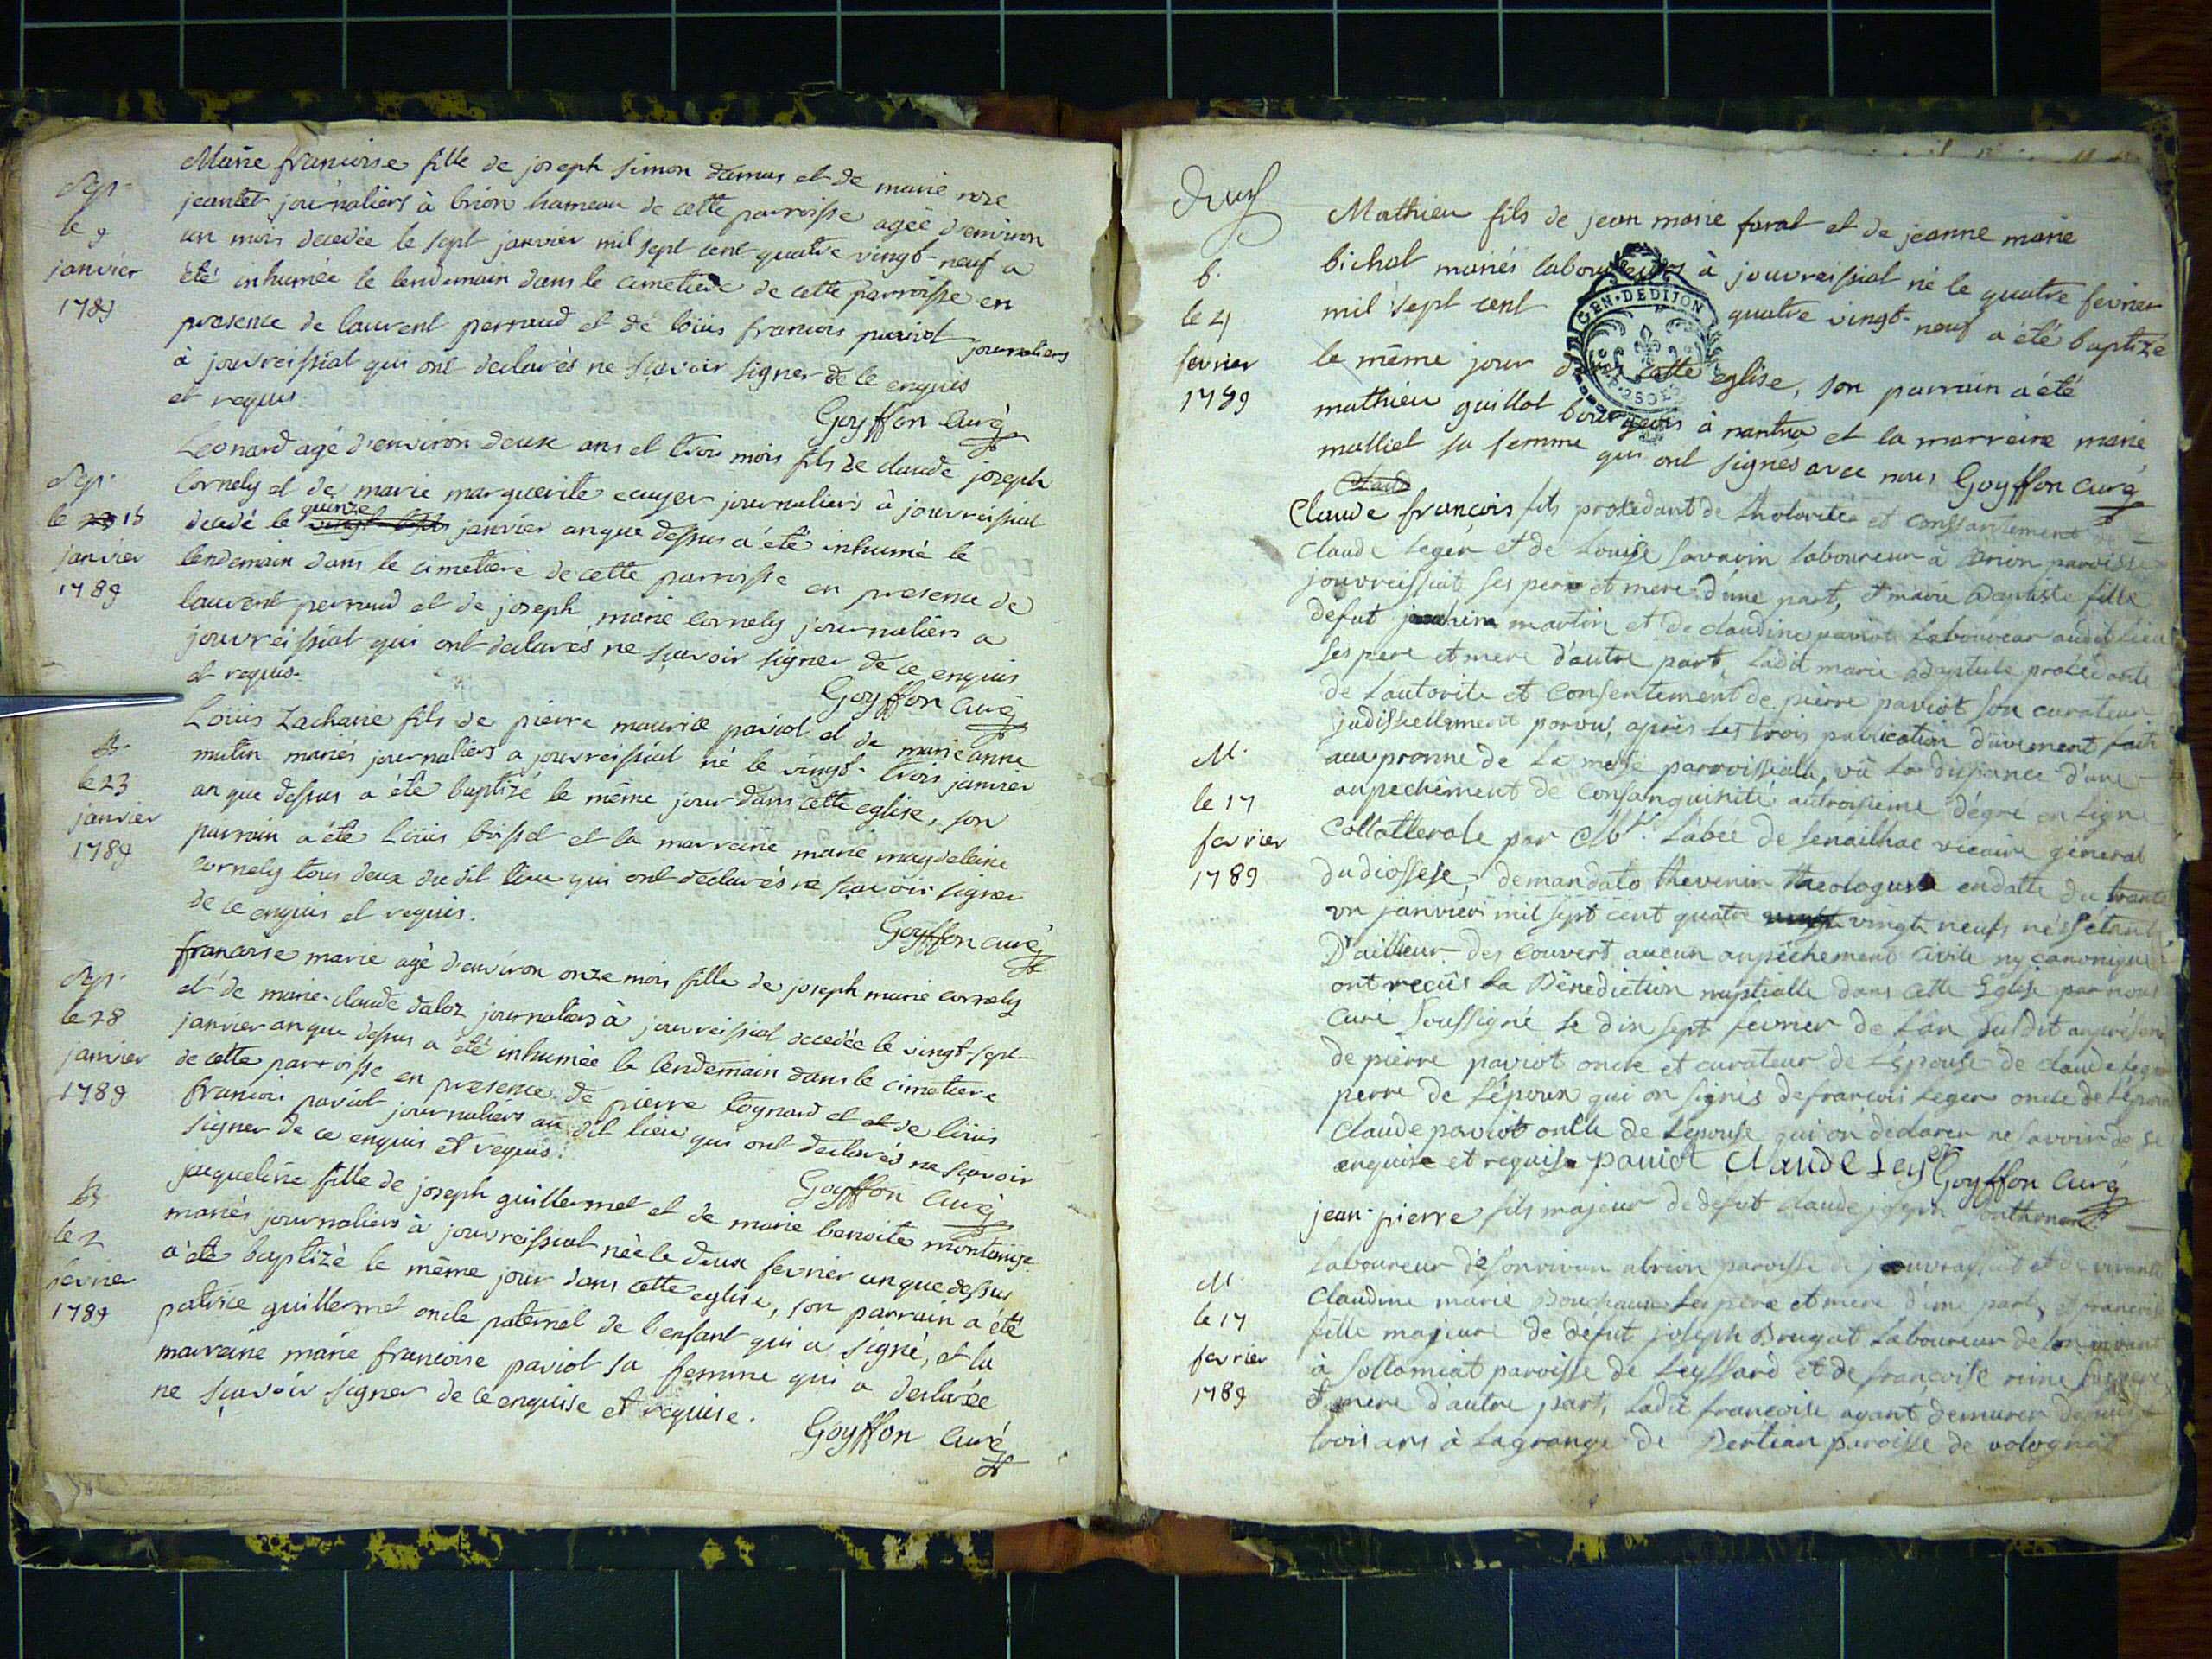 Sep.
le 9
janvier
1789
Marie francoise fille de joseph simon damas et de marie roze
jeantet journaliers à brion hameau de cette parroisse agée d'environ
un mois decedée le sept janvier mil sept cent quatre vingt-neuf a
été inhumée le lendemain dans le cimetiere de cette parroisse en
presence de laurent perraud et de loüis francois paviot journaliers
à jouvreissiat qui ont declarés ne sçavoir signer de ce enquis
et requis
Goyffon Curé
Sep.
le 15
janvier
1789
Leonard agé d'environ deux ans et trois mois fils de claude joseph
Cornely et de marie marguerite ecuyer journaliers à jouvreissiat
decedé le quinze janvier an que dessus a été inhumé le
lendemain dans le cimetiere de cette parroisse en presence de
laurent perraud et de joseph marie Cornely journaliers a
jouvreissiat qui ont declarés ne sçavoir signer de ce enquis
et requis.
Goyffon Curé
B.
le 23
janvier
1789
Loüis Zacharie fils de pierre maurice paviot et de marie anne
mutin mariés journaliers a jouvreissiat né le vingt-trois janvier
an que dessus a été baptizé le même jour dans cette eglise, son
parrain a été Loüis bissel et la marreine marie magdeleine
cornely tous deux du dit lieu qui ont declarés ne sçavoir signer
de ce enquis et requis.
Goyffon curé
Sep.
le 28
janvier
1789
francoise marie agé d'environ onze mois fille de joseph marie cornely
et de marie-claude daloz journaliers à jouvreissiat decedée le vingt-sept
janvier an que dessus a été inhumée le lendemain dans le cimetiere
de cette parroisse en presence de pierre tognard et et de loüis
francois paviot journaliers au dit lieu qui ont declarés ne sçavoir
signer de ce enquis et requis.
Goyffon Curé
B
le 2
fevrier
1789
jaqueline fille de joseph guillermet et de marie benoite montange
mariés journaliers à jouvreissiat née le deux fevrier an que dessus
a été baptizé le même jour dans cette eglise, son parrain a été
patrice guillermet oncle paternel de l'enfant qui a signé, et la
marreine marie francoise paviot sa femme qui a declarée
ne sçavoir signer de ce enquise et requise.
Goyffon Curé
deux
b.
le 4
fevrier
1789
Mathieu fils de jean marie farat et de jeanne marie
bichat mariés laboureurs à jouvreissiat né le quatre fevrier
mil sept cent quatre vingt-neuf a été baptizé
le même jour dans cette eglise, son parrain a été
mathieu guillot bourgeois à nantua et la marreine marie
malliet sa femme qui ont signés avec nous Goyffon curé
GEN·DE DIJON
M.
le 17
fevrier
1789
Claude
Claude françois fils procedant de Lhotorité et consantement de
claude Leger et de Louise Savarin laboureur à Brion paroisse
jouvreissiat ses pere et mere d'une part, et marie Baptiste fille
defut joachim martin et de claudine paviot Laboureur audit Lieu
ses pere et mere d'autre part, Ladit marie Baptiste procédante
de Lautorite et Consentement de pierre paviot son curateur
judissiellement porvu, après Les trois publication düement faite
au pronne de La messe parroissialle, vû La dispance d'une
anpechement de Consanguinité au troisieme dégré en Ligne
Collatterale par Mr Labée de senailhac vicaire géneral
du diossese, demandato thevenin theologus endatte du trante
un janvier mil sept cent quatre vingt neuf, né s'Etant
D'ailleur des couvert aucun anpêchement Civile ny canonique
ont reçüs La Bénediction nuptialle dans Cette Eglise par nous
Curé Soussigné Le dix sept fevrier de Lan Susdit anprésence
de pierre paviot oncle et curateur de L'épouse de claude Leger
perre de L'époux qui on signés de francois Leger oncle de L'époux
Claude paviot oncle de Lépouse qui on declarer ne savoir de se
anquise et requise paviot Claude Leger Goyffon Curé
M.
le 17
fevrier
1789
jean-pierre fils majeur de défut claude joseph
Laboureur de Sonvivan abrion paroisse de jouvrayssiat et de vivante
Claudine marie Bouchaux Ses pere et mere d'une part, et francoise
fille majeure de défut joseph Brugat Laboureur de Son vivant
à Sollomiat paroisse de Leyssard et de francoise reine Ses pere
et mere d'autre part, Ladit francoise ayant demurer depuis
trois ans à Lagrange de Bertian paroisse de volognat